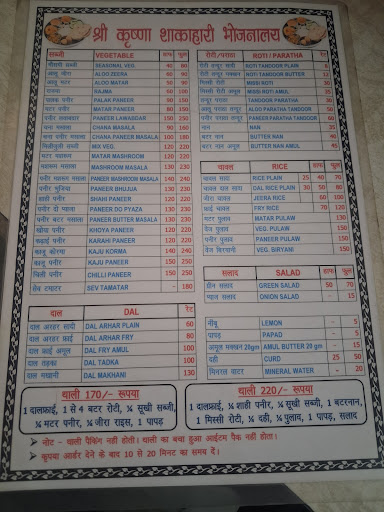 श्री कृष्णा शाकाहारी भोजनालय
सब्जी VEGETABLE हाफ फुल
मौसमी सब्जी SEASONAL VEG. 40 80
आलू जीरा ALOO ZEERA 60 90
आलू मटर ALOO MATAR 50 90
राजमा RAJMA 60 100
पालक पनीर PALAK PANEER 90 150
मटर पनीर MATAR PANEER 80 150
पनीर लवाबदार PANEER LAWABDAR 150 250
चना मसाला CHANA MASALA 90 160
चना पनीर मसाला CHANA PANEER MASALA 100 180
मिक्स वेज MIX VEG. 120 220
मटर मशरूम MATAR MASHROOM 120 220
मशरूम मसाला MASHROOM MASALA 120 220
पनीर मशरूम मसाला PANEER MASHROOM MASALA 140 240
पनीर भुजिया PANEER BHUJUA 180 320
शाही पनीर SHAHI PANEER 120 220
पनीर दो प्याजा PANEER DO PYAZA 130 230
पनीर बटर मसाला PANEER BUTTER MASALA 130 230
खोया पनीर KHOYA PANEER 120 220
कढ़ाई पनीर KARAHI PANEER 120 220
काजू कोरमा KAJU KORMA 140 240
काजू पनीर KAJU PANEER 150 250
चिली पनीर CHILLI PANEER 150 250
सेव टमाटर SEV TAMATAR - 180
दाल DAL रेट
दाल अरहर सादी DAL ARHAR PLAIN 60
दाल अरहर फ्राई DAL ARHAR FRY 80
दाल फ्राई अमूल DAL FRY AMUL 100
दाल तड़का DAL TADKA 100
दाल मखानी DAL MAKHANI 130
रोटी/पराठा ROTI / PARATHA रेट
रोटी तन्दूर सादी ROTI TANDOOR PLAIN 8
रोटी तन्दूर मक्खन ROTI TANDOOR BUTTER 12
मिस्सी रोटी MISSI ROTI 20
मिस्सी रोटी अमूल MISSI ROTI AMUL 25
तन्दूर पराठा TANDOOR PARATHA 30
आलू पराठा तन्दूर ALOO PARATHA TANDOOR 50
पनीर पराठा तन्दूर PANEER PARATHA TANDOOR 60
नान NAN 35
बटर नान BUTTER NAN 40
बटर नान अमूल BUTTER NAN AMUL 45
चावल RICE हाफ फुल
चावल सादा RICE PLAIN 25 40 70
चावल दाल सादा DAL RICE PLAIN 30 50 80
जीरा चावल JEERA RICE 60 100
फ्राई चावल FRY RICE 70 120
मटर पुलाव MATAR PULAW - 130
वेज पुलाव VEG. PULAW - 130
पनीर पुलाव PANEER PULAW - 150
वेज बिरयानी VEG. BIRYANI - 150
सलाद SALAD हाफ फुल
ग्रीन सलाद GREEN SALAD 50 70
प्याज सलाद ONION SALAD - 15
नींबू LEMON - 5
पापड़ PAPAD - 15
अमूल मक्खन 20gm AMUL BUTTER 20 gm - 15
दही CURD 25 50
मिनरल वाटर MINERAL WATER - 20
थाली 170/- रूपया
1 दालफ्राई, 1 से 4 बटर रोटी, ¼ सूखी सब्जी,
¼ मटर पनीर, ¼ जीरा राइस, 1 पापड़
थाली 220/- रूपया
1 दालफ्राई, ¼ शाही पनीर, ¼ सूखी सब्जी, 1 बटरनान,
1 मिस्सी रोटी, ½ दही, ¼ पुलाव, 1 पापड़, सलाद
नोट - थाली पैकिंग नहीं होती। थाली का बचा हुआ आईटम पैक नहीं होगा।
कृपया आर्डर देने के बाद 10 से 20 मिनट का समय दें।